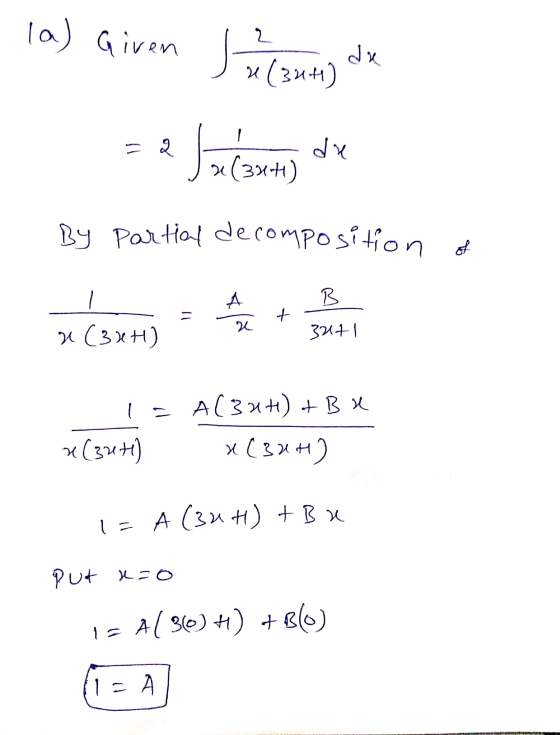 1a) Given ∫ 2/x(3x+1) dx
= 2 ∫ 1/x(3x+1) dx
By Partial decomposition of
1/x(3x+1) = A/x + B/3x+1
1/x(3x+1) = A(3x+1) + Bx/x(3x+1)
1 = A(3x+1) + Bx
Put x=0
1 = A(3(0)+1) + B(0)
1 = A